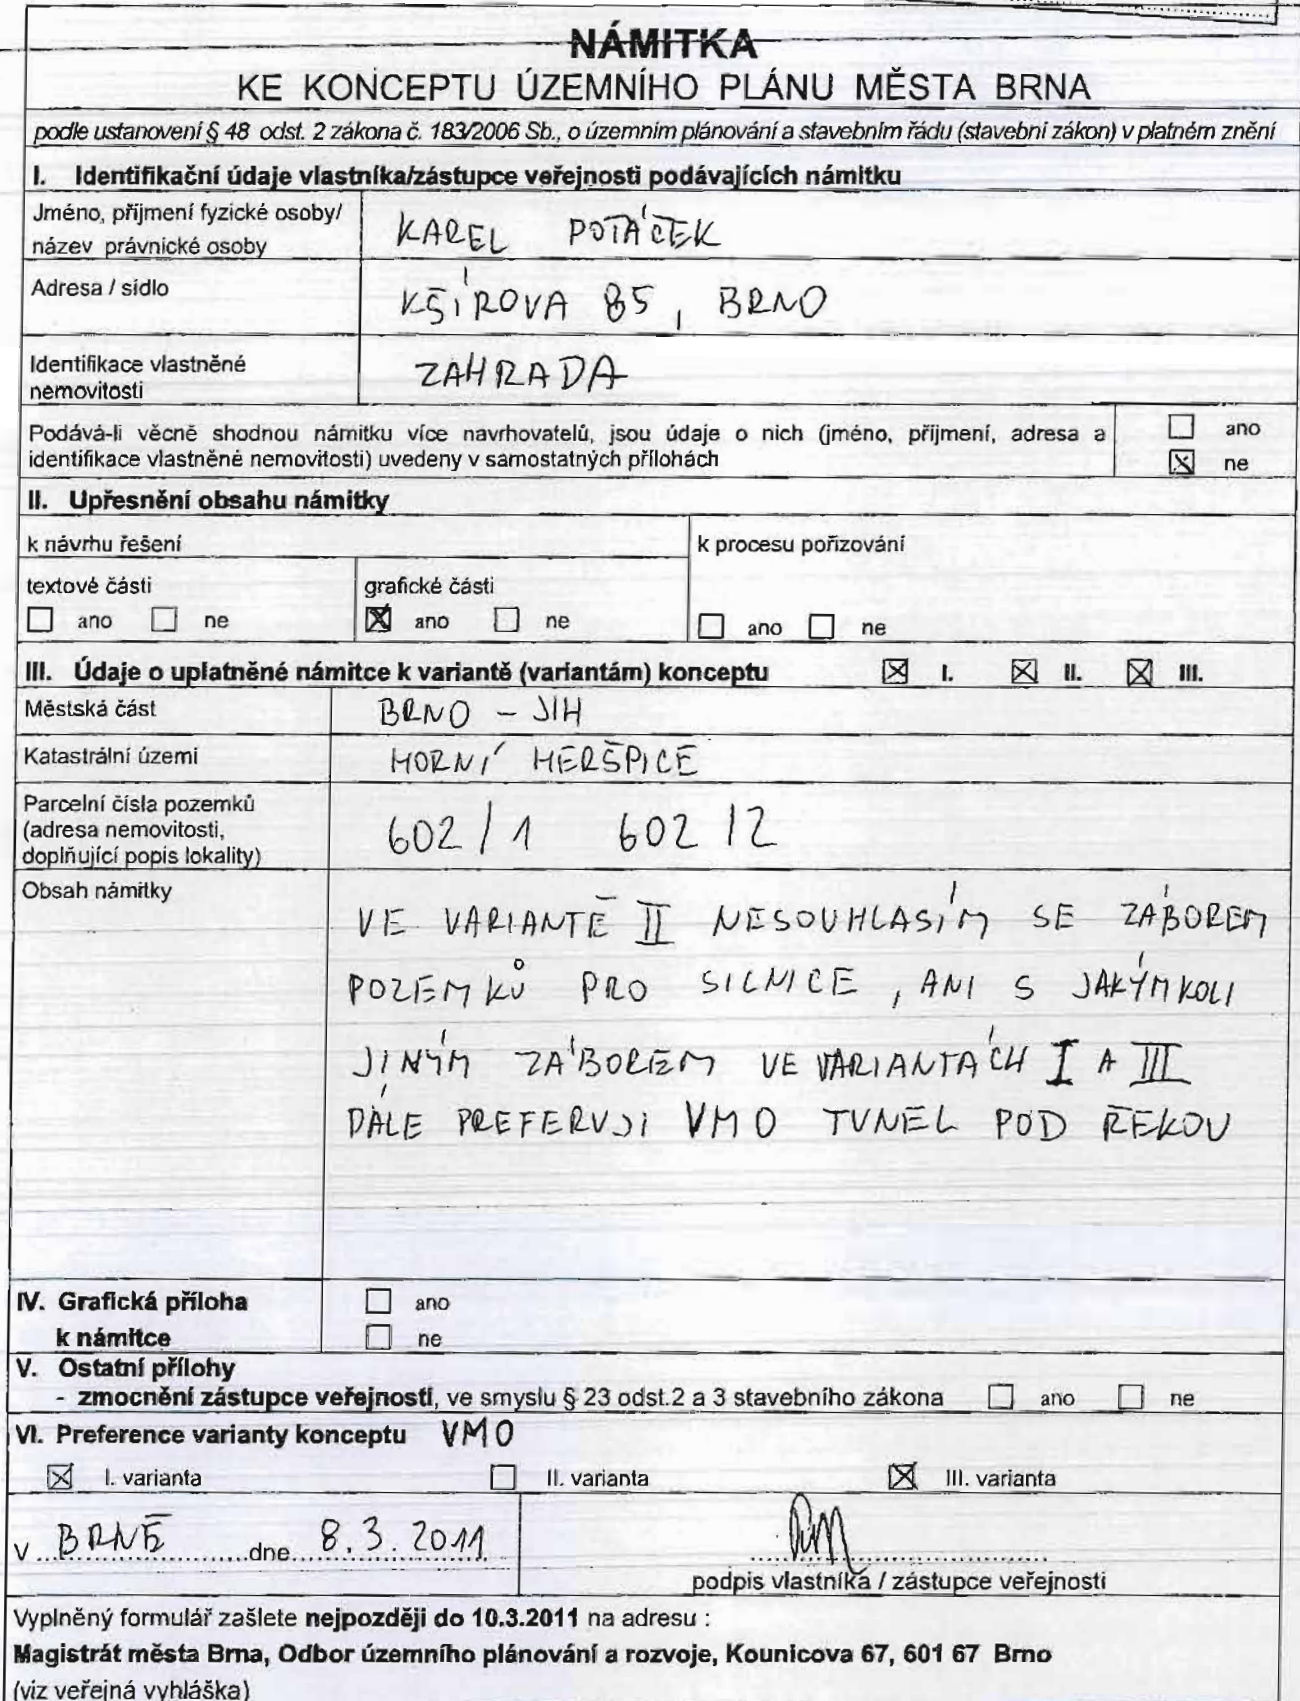 NÁMITKA
KE KONCEPTU ÚZEMNÍHO PLÁNU MĚSTA BRNA
podle ustanovení § 48 odst. 2 zákona č. 183/2006 Sb., o územním plánování a stavebním řádu (stavební zákon) v platném znění
I. Identifikační údaje vlastníka/zástupce veřejnosti podávajících námitku
Jméno, příjmení fyzické osoby/
název právnické osoby
KAREL POTÁČEK
Adresa / sídlo
KŠÍROVA 85, BRNO
Identifikace vlastněné
nemovitosti
ZAHRADA
Podává-li věcně shodnou námitku více navrhovatelů, jsou údaje o nich (jméno, příjmení, adresa a
identifikace vlastněné nemovitosti) uvedeny v samostatných přílohách
ano
ne
II. Upřesnění obsahu námitky
k návrhu řešení
k procesu pořizování
textové části
grafické části
ano ne ano ne ano ne
III. Údaje o uplatněné námitce k variantě (variantám) konceptu I. II. III.
Městská část
BRNO - JIH
Katastrální území
HORNÍ HERŠPICE
Parcelní čísla pozemků
(adresa nemovitosti,
doplňující popis lokality)
602/1 602/2
Obsah námitky
VE VARIANTĚ II NESOUHLASÍM SE ZÁBOREM
POZEMKŮ PRO SILNICE, ANI S JAKÝMKOLI
JINÝM ZÁBOREM VE VARIANTÁCH I A III
DÁLE PREFERUJI VMO TUNEL POD ŘEKOU
IV. Grafická příloha
k námitce
ano
ne
V. Ostatní přílohy
- zmocnění zástupce veřejnosti, ve smyslu § 23 odst.2 a 3 stavebního zákona ano ne
VI. Preference varianty konceptu VMO
I. varianta II. varianta III. varianta
V BRNĚ dne 8.3.2011
podpis vlastníka / zástupce veřejnosti
Vyplněný formulář zašlete nejpozději do 10.3.2011 na adresu :
Magistrát města Brna, Odbor územního plánování a rozvoje, Kounicova 67, 601 67 Brno
(viz veřejná vyhláška)